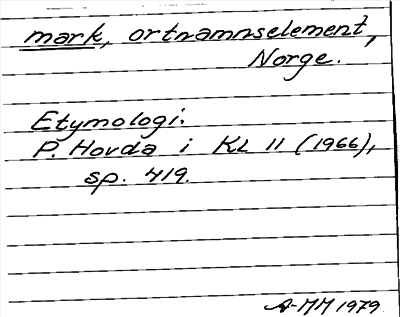 mark, ortnamnselement,
Norge.
Etymologi:
P. Hovda i KL 11 (1966),
sp. 419.
A-MM 1979